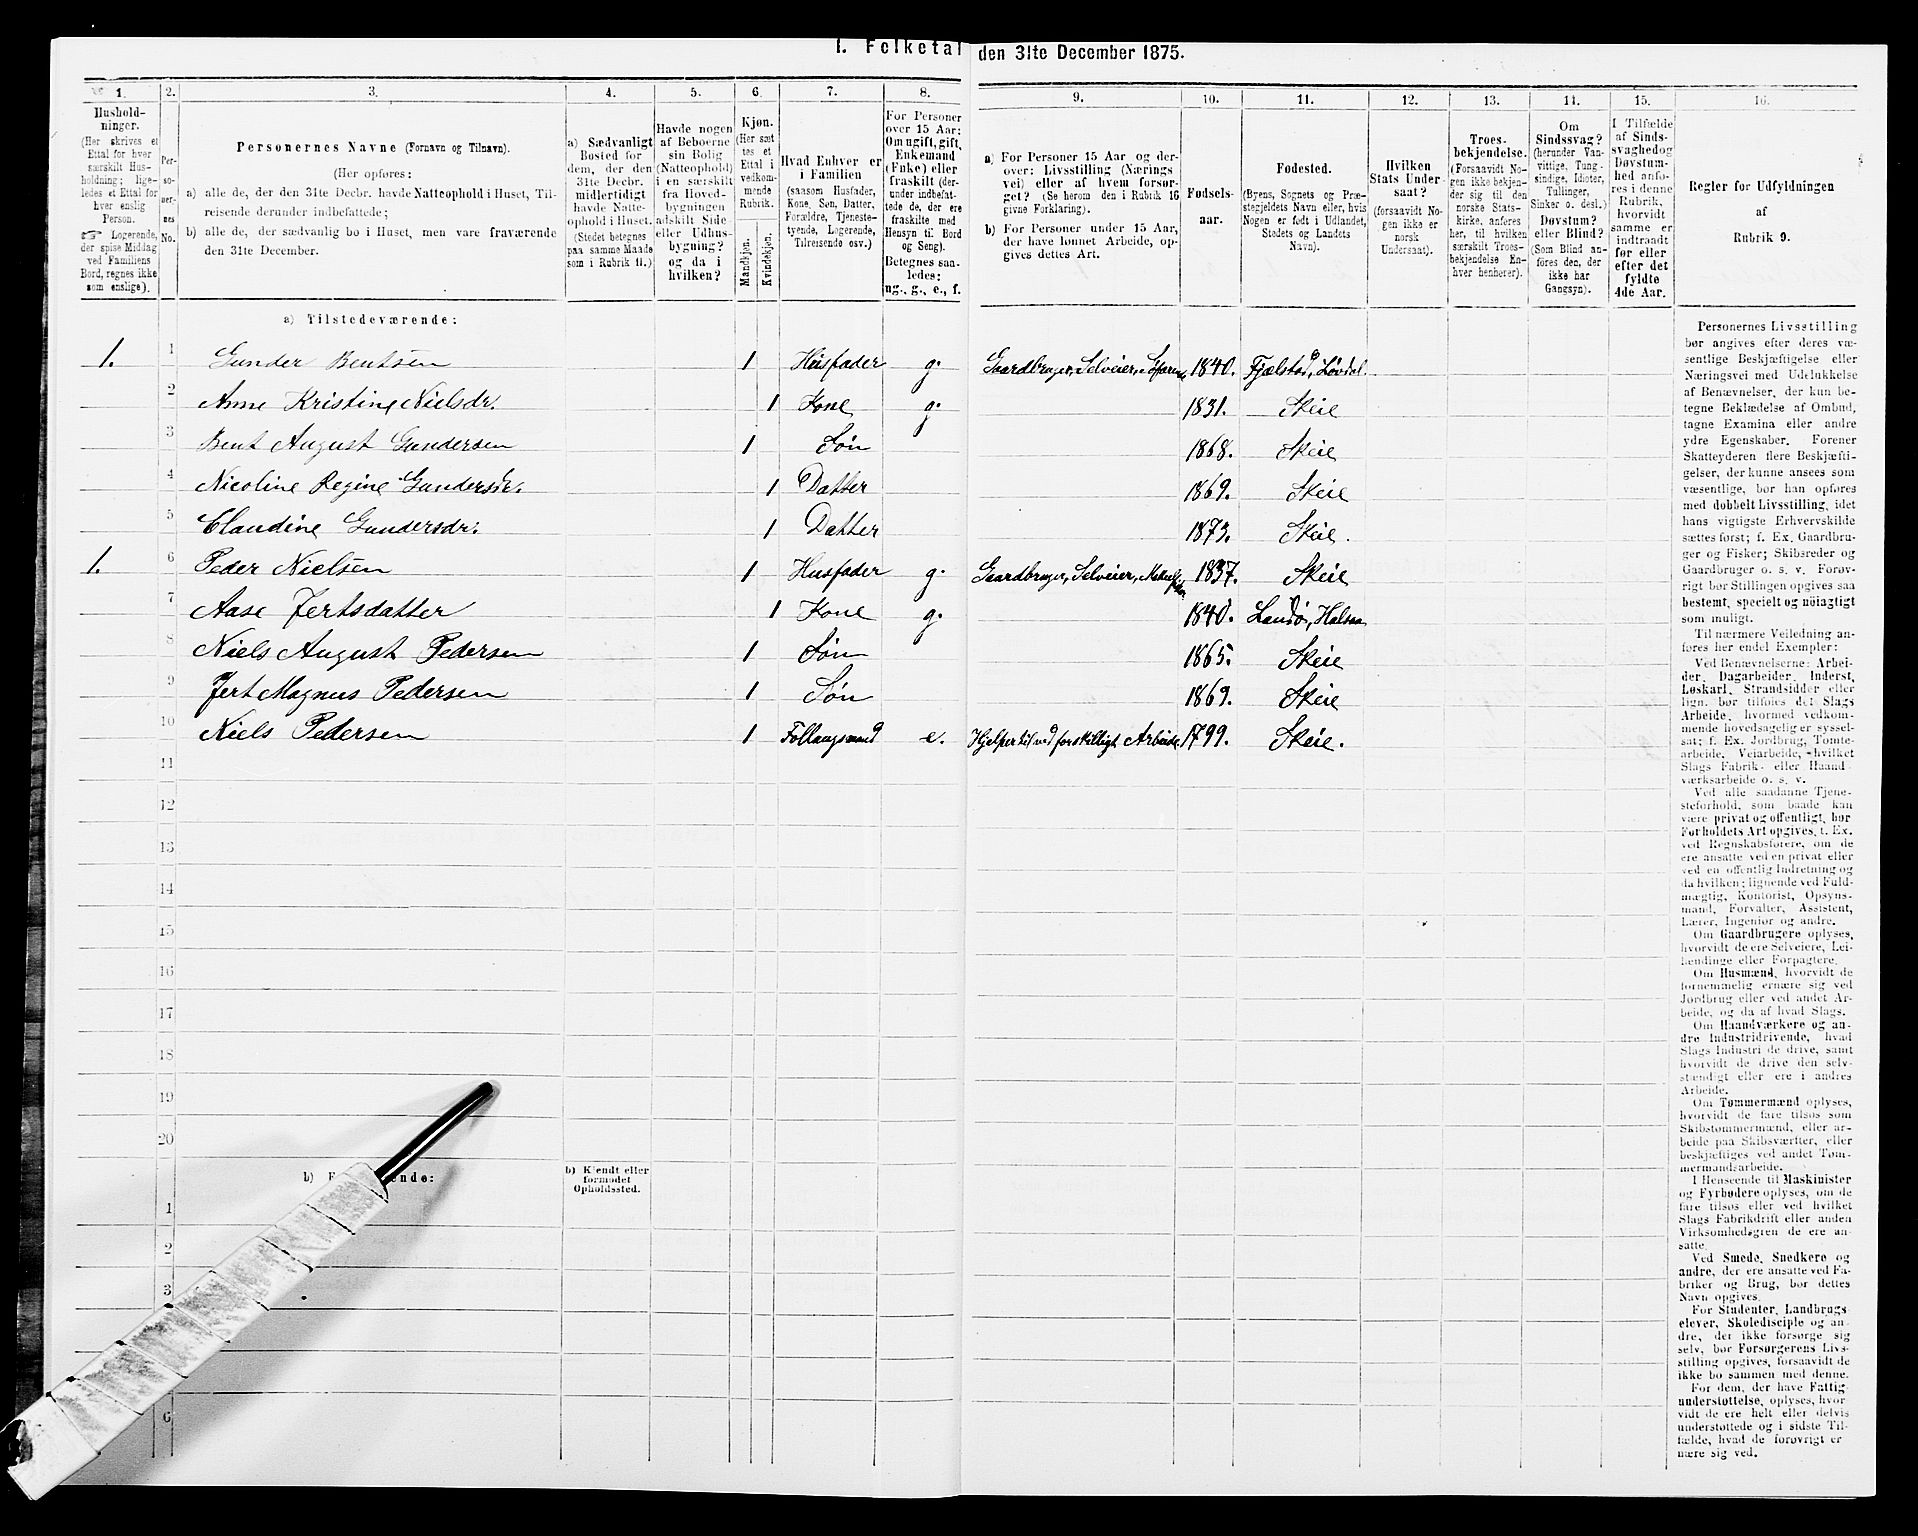 1. Folketal den 31te December 1875.
1. 2. 3. 4. 5. 6. 7. 8. 9. 10. 11. 12. 13. 14. 15. 16.
Hushold-
ninger.
(Her skrives et
Ettal for hver
særskilt Hus-
holdning; lige-
ledes et Ettal for
hver enslig
Person.
☞ Logerende,
der spise Middag
ved Familiens
Bord, regnes ikke
som enslige).
Per-
so-
ner-
nes
No.
Personernes Navne (Fornavn og Tilnavn).
(Her opføres:
a) alle de, der den 31te Decbr. havde Natteophold i Huset, Til-
reisende derunder indbefattede;
b) alle de, der sædvanlig bo i Huset, men vare fraværende
den 31te December.
a) Sædvanligt
Bosted for
dem, der den
31te Decbr.
midlertidigt
havde Natte-
ophold i Huset.
(Stedet betegnes
paa samme Maade
som i Rubrik 11.)
Havde nogen
af Beboerne
sin Bolig
(Natteophold)
i en særskilt
fra Hoved-
bygningen
adskilt Side-
eller Udhus-
bygning?
og da i
hvilken?
Kjøn.
(Her sæt
tes et
Ettal i
vedkom-
mende
Rubrik.
Mandkjøn.
Kvindekjøn.
Hvad Enhver er
i Familien
(saasom Husfader,
Kone, Søn, Datter,
Forældre, Tjeneste-
tyende, Logerende,
Tilreisende osv.)
For Personer
over 15 Aar:
Om ugift, gift,
Enkemand
(Enke) eller
fraskilt (der-
under indbefat-
tede de, der ere
fraskilte med
Hensyn til Bord
og Seng).
Betegnes saa-
ledes:
ug., g., e., f.
a) For Personer 15 Aar og der-
over: Livsstilling (Nærings
vei) eller af hvem forsør-
get? (Se herom den i Rubrik 16
givne Forklaring).
b) For Personer under 15 Aar,
der have lønnet Arbeide, op-
gives dettes Art.
Fødsels-
aar.
Fødested.
(Byens, Sognets og Præ-
stegjeldets Navn eller, hvis
Nogen er født i Udlandet,
Stedets og Landets
Navn).
Hvilken
Stats Under-
saat?
(forsaavidt No-
gen ikke er
norsk
Undersaat).
Troes-
bekjendelse.
(Forsaavidt No-
gen ikke bekjen-
der sig til den
norske Stats-
kirke, anføres
her, til hvilken
særskilt Troes-
bekjendelse En-
hver henhører).
Om
Sindssvag?
(herunder Van-
vittige, Tung-
sindige, Idioter,
Tullinger,
Sinker o. desl.)
Døvstum?
eller Blind?
(Som Blind an-
føres den, der
ikke har
Gangsyn).
I Tilfælde
af Sinds-
svaghed og
Døvstum-
hed anfø-
res i denne
Rubrik,
hvorvidt
samme er
indtraadt
før eller
efter det
fyldte
4de Aar.
Regler for Udfyldningen
af
Rubrik 9.
a) Tilstedeværende:
1. 1 Gunder Bentsen 1 Husfader g. Gaardbruger, Selveier, 1840. Fjælstad, Løvdal.
2 Anne Kristine Nielsdr. 1 Kone g. 1831. Skeie
3 Bent August Gundersen 1 Søn 1868. Skeie
4 Nicoline Regine Gundersdr. 1 Datter 1869. Skeie
5 Claudine Gundersdr. 1 Datter 1873. Skeie.
1. 6 Peder Nielsen 1 Husfader g. Gaardbruger, Selveier, 1837. Skeie
7 Aase Jertsdatter 1 Kone g. 1840. Landø, Halsaa
8 Niels August Pedersen 1 Søn 1865. Skeie
9 Jert Magnus Pedersen 1 Søn 1869. Skeie
10 Niels Pedersen 1 Follaugsmand e. Hjelper til ved forskilligt Arbeide. 1799. Skeie.
11
12
13
14
15
16
17
18
19
20
b) F ende: b) Kjendt eller
formodet
Opholdssted.
1
2
3
6
Personernes Livsstilling
bør angives efter deres væ-
sentlige Beskjæftigelse eller
Næringsvei med Udelukkelse
af Benævnelser, der kun be-
tegne Beklædelse af Ombud,
tagne Examina eller andre
ydre Egenskaber. Forener
Skatteyderen flere Beskjæfti-
gelser, der kunne ansees som
væsentlige, bør han opføres
med dobbelt Livsstilling, idet
hans vigtigste Erhvervskilde
sættes først; f. Ex. Gaardbru-
ger og Fisker; Skibsreder og
Gaardbruger o. s. v. Forøv-
rigt bør Stillingen opgives saa
bestemt, specielt og nöiagtigt
som muligt.
Til nærmere Veiledning an-
føres her endel Exempler:
Ved Benævnelserne: Arbei-
der, Dagarbeider, Inderst,
Løskarl, Strandsidder eller
lign. bør tilføies det Slags
Arbeide, hvormed vedkom-
mende hovedsagelig er syssel-
sat; f. Ex. Jordbrug, Tomte-
arbeide, Veiarbeide, hvilket
Slags Fabrik- eller Haand-
værksarbeide o. s. v.
Ved alle saadanne Tjene-
steforhold, som baade kan
være privat og offentligt, bør
Forholdets Art opgives, t. Ex.
ved Regnskabsførere, om de
ere ansatte ved en privat eller
ved en offentlig Indretning og
da hvilken; lignende ved Fuld-
mægtig, Kontorist, Opsyns-
mand, Forvalter, Assistent,
Lærer, Ingeniør og andre.
Om Gaardbrugere oplyses,
hvorvidt de ere Selveiere, Lei-
lændinge eller Forpagtere.
Om Husmænd, hvorvidt de
fornemmelig ernære sig ved
Jordbrug eller ved andet Ar-
beide, og da af hvad Slags.
Om Haandværkere og an-
dre Industridrivende, hvad
Slags Industri de drive, samt
hvorvidt de drive den selv-
stændigt eller ere i andres
Arbeide.
Om Tømmermænd oplyses,
hvorvidt de fare tilsøs som
Skibstømmermænd, eller ar-
beide paa Skibsværfter, eller
beskjæftiges ved andet Tøm-
mermandsarbeide.
I Henseende til Maskinister
og Fyrbødere oplyses, om de
fare tilsøs eller ved hvilket
Slags Fabrikdrift eller anden
Virksomhedsgren de ere an-
satte.
Ved Smede, Snedkere og
andre, der ere ansatte ved Fa-
briker og Brug, bør dettes
Navn opgives.
For Studenter, Landbrugs-
elever, Skoledisciple og an-
dre, der ikke forsørge sig
selv, bør Forsørgerens Livs-
stilling opgives, forsaavidt de
ikke bo sammen med denne.
For dem, der have Fattig-
understøttelse, oplyses, hvor-
vidt de ere helt eller delvis
understøttede og i sidste Til-
fælde, hvad de forøvrigt er-
nære sig ved.